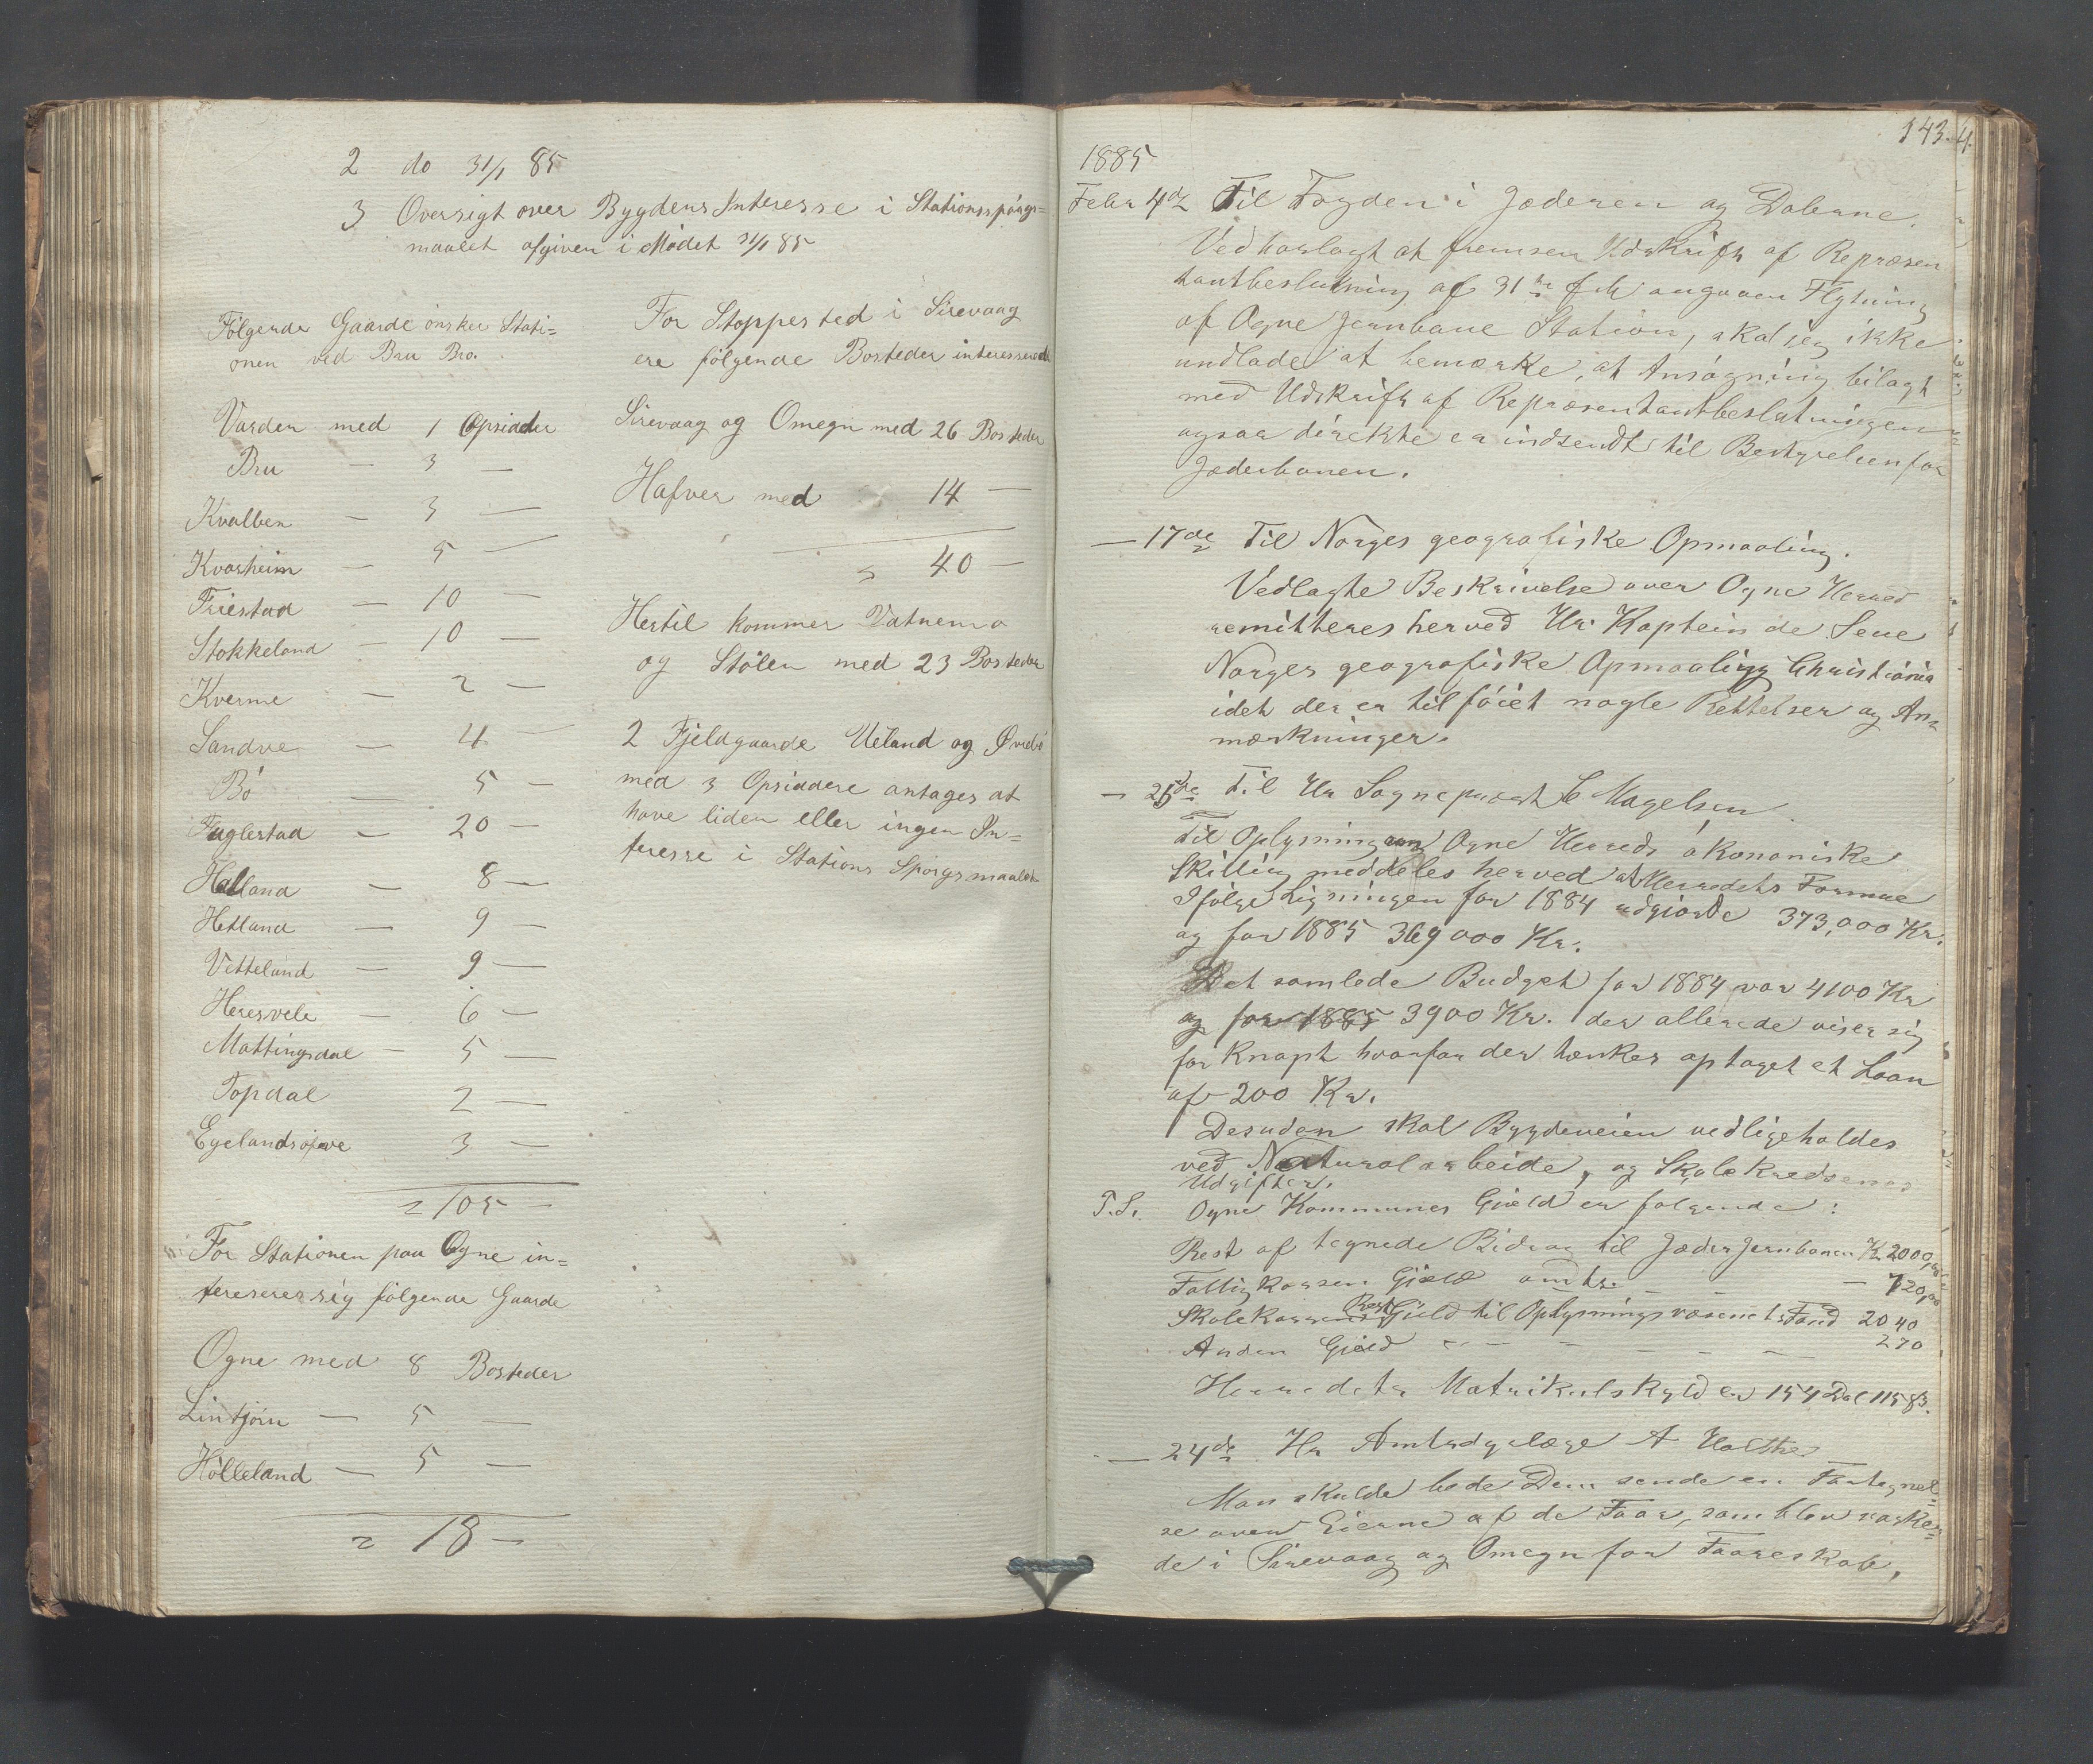 2 do 31/1 85
3 Oversigt over Bygdens Interesse i Stationsspörgs=
maalet afgiven i Mödet 31/1 85
Fölgende Gaarde önsker Stati=
onen ved Bru Bro.
Varden med 1 Opsidder
Bru — 3 —
Kvalben — 3 —
Kvasheim — 5 —
Friestad — 10 —
Stokkeland — 10 —
Kverme — 2 —
Sandve — 4 —
Bö — 5 —
Fuglestad — 20 —
Hålland — 8 —
Hetland — 9 —
Vetteland — 9 —
Heresvele — 6 —
Mattingsdal — 5 —
Topdal 2 —
Egelandsöpave 3 —
= 105 —
For Stationen paa Ogne in=
tereserer sig fölgende Gaarde
Ogne med 8 Bosteder
Lintjörn — 5 —
Hölleland — 5 —
= 18 —
For Stoppested i Sirevaag
ere fölgende Bosteder interesserede
Sirevaag og Omegn med 26 Bosteder
Hafver med 14 —
= 40 —
Hertil kommer Vatnemo
og Stölen med 23 Bosteder
2 Fjeldgaarde Ueland og Øvrebö
med 3 Opsiddere antages at
have liden eller ingen In=
teresse i Stations Spörgsmaalet
143. 4.
1885
Febr 4de Til Fogden i Jæderen og Dalerne.
Vedhoslagt at fremsen Udskrift af Repræsen
tantbeslutning af 31te f M angaaen Flytning
af Ogne Jernbane Station, skal jeg ikke
undlade at bemærke, at Ansøgning bilagt
med Udskrift af Repræsentantbeslutningen
ogsaa direkte er indsendt til Bestyrelsen for
Jæderbanen.
— 17de Til Norges geografiske Opmaaling.
Vedlagte Beskrivelse over Ogne Herred
remitteres herved Hr. Kaptein de Seue
Norges geografiske Opmaaling Christiania
idet der er tilföiet nogle Rettelser og An=
mærkninger.
— 25de Til Hr Sogneprest C Magelsen.
Til Oplysning om Ogne Herreds ökonomiske
Skilling meddeles herved at Herredets Formue
Ifölge Ligningen for 1884 udgiorde 373,000 Kr.
og for 1885 369 000 Kr.
Det samlede Budget for 1884 var 4100 Kr
og for 1885 3900 Kr. der allerede viser sig
for Knapt hvorfor der tænkes optaget et Laan
af 200 Kr.
Desuden skal Bygdeveien vedligeholdes
ved Naturalarbeide, og Skolekredsenes
Udgifter.
T.S. Ogne Kommunes Gjæld er følgende:
Rest af tegnede Bidrag til Jæder Jernbanen Kr 2000,00
Fattigkassen Gjæld omtr. — — — 720,00
Skolekassens Rest Gjæld til Oplysningsvæsenets Fond 2040
Anden Gjæld — — — — — 270
Herredets Matrikulskyld er 154 Dal 1 1583.
— 24de Hr Amtsdyrlæge A Holthe
Man skulde bede Dem sende en Fortegnel=
se over Eierne af de Faar, som blev vaske=
de i Sirevaag og Omegn for Faareskab,